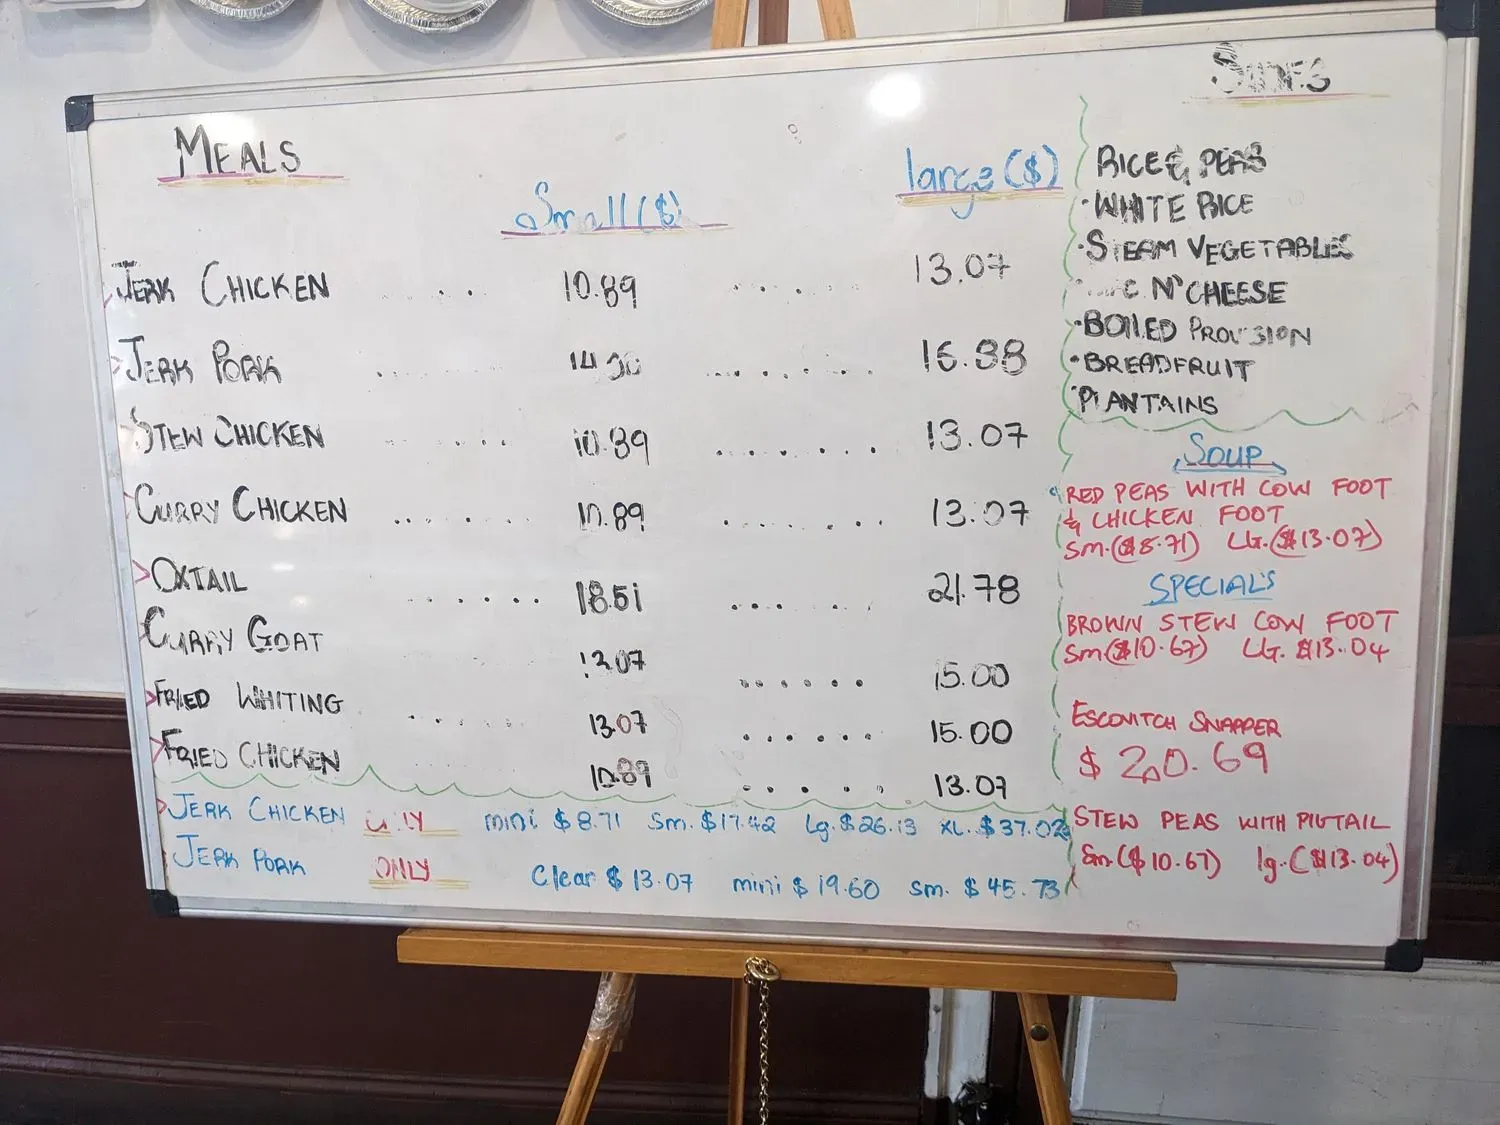 MEALS
Small ($) large ($)
JERK CHICKEN ..... 10.89 ...... 13.07
JERK PORK ........ ........ 16.38
STEW CHICKEN ...... 10.89 ....... 13.07
CURRY CHICKEN ...... 10.89 ....... 13.07
OXTAIL ....... 18.51 ...... 21.78
CURRY GOAT 13.07 ...... 15.00
FRIED WHITING ...... 13.07 ...... 15.00
FRIED CHICKEN 10.89 ...... 13.07
JERK CHICKEN ONLY mini $8.71 Sm. $17.42 Lg. $26.13 XL. $37.02
JERK PORK ONLY Clear $13.07 mini $19.60 sm. $45.73
SIDES
RICE & PEAS
• WHITE RICE
• STEAM VEGETABLES
N' CHEESE
• BOILED PROVISION
• BREADFRUIT
• PLANTAINS
SOUP
RED PEAS WITH COW FOOT
& CHICKEN FOOT
sm. ($8.71) LG. ($13.07)
SPECIAL'S
BROWN STEW COW FOOT
sm ($10.67) LG. $13.04
ESCOVITCH SNAPPER
$20.69
STEW PEAS WITH PIGTAIL
Sm ($10.67) lg. ($13.04)